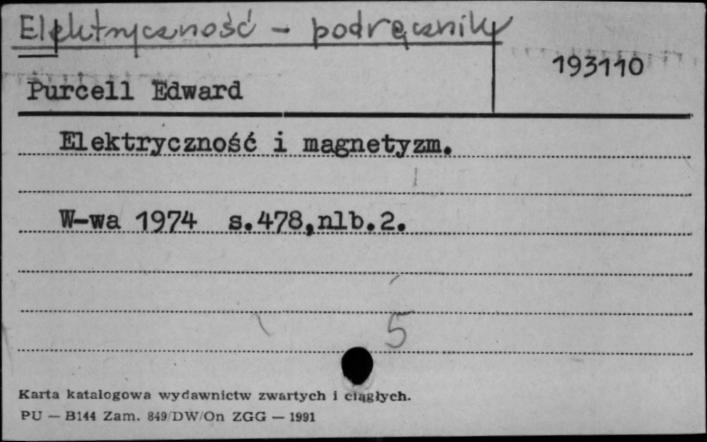 Elektryczność - podręczniki
193110
Purcell Edward
Elektryczność i magnetyzm.
W-wa 1974 s.478,nlb.2.
5
Karta katalogowa wydawnictw zwartych i ciągłych.
PU — B144 Zam. 849/DW/On ZGG — 1991